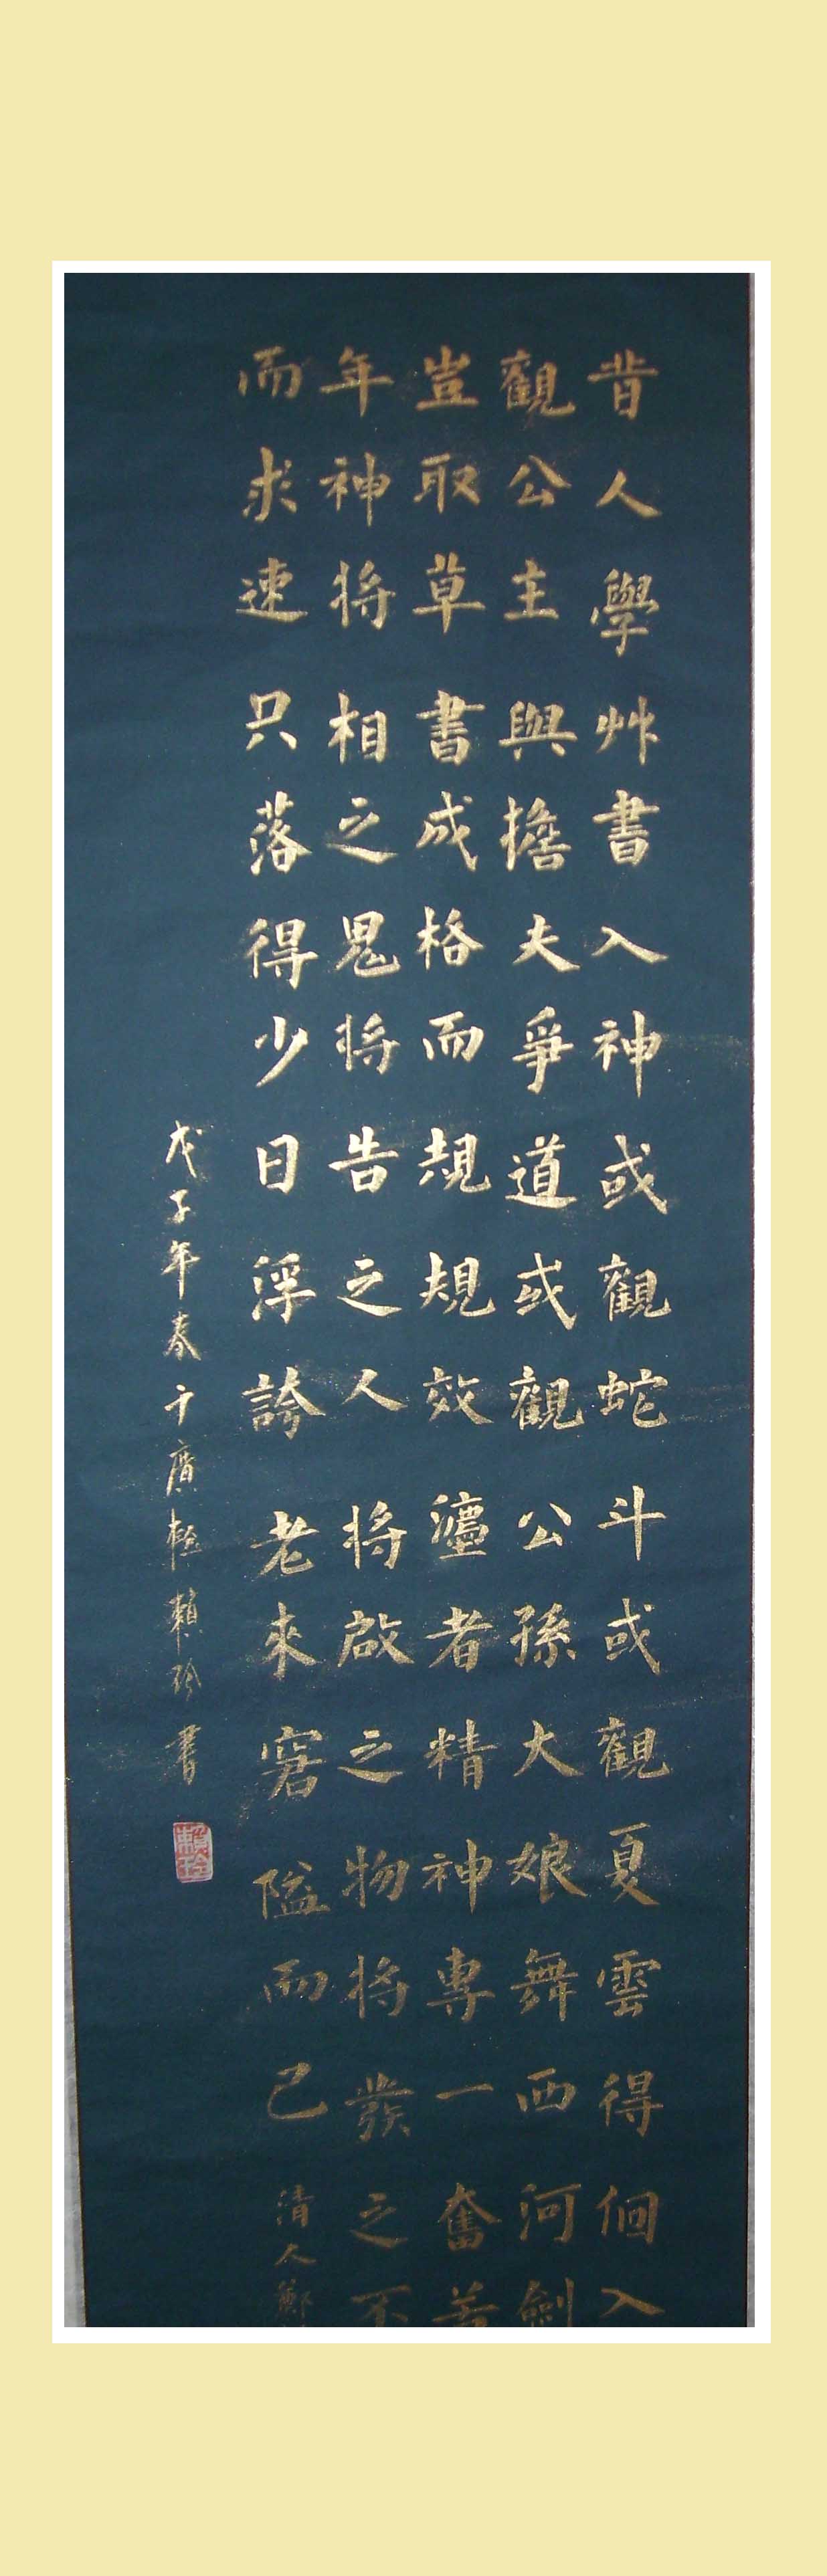 昔人學艸書入神或觀蛇斗或觀夏雲得個入
觀公主與擔夫爭道或觀公孫大娘舞西河劍
豈取草書成格而規規效灋者精神專一奮苦
年神將相之鬼將告之人將啟之物將發之不
而求速只落得少日浮誇老來窘隘而已清人鄭
戊子年春于廣
賴玲書
賴玲